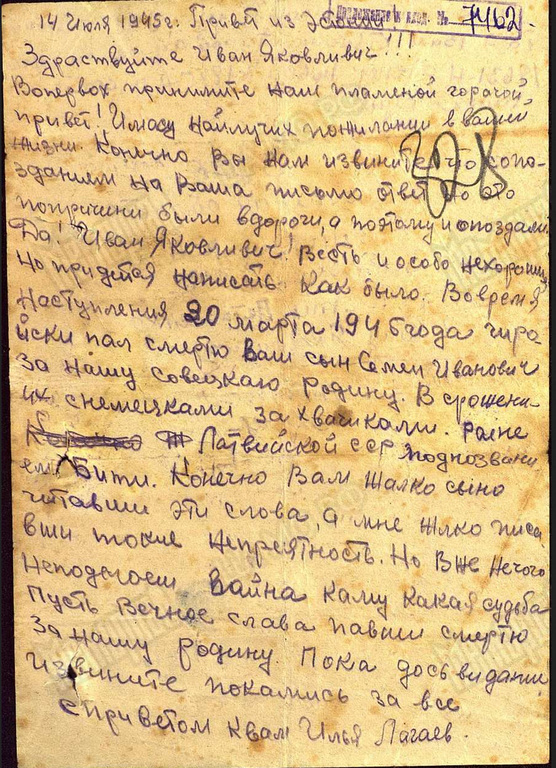 14 Июля 1945г. Привет из
Приложение к вход. № 7462
Здраствуйте Иван Яковливич!!!
Вопервох примите наш пламеной горачой
привет! Имасу найлучих пожилании в вашей
жизни. Конечно вы нам извините что сопо-
зданием на Ваша письмо ответ но это
попричини были вдороги, а поэтому и опоздали.
Да! Иван Яковливич! Весть и особо нехорошия
Но придется написать Как было. Вовремя
Наступления 20 марта 1945 года гиро-
йски пал смертю Ваш сын Семен Иванович
За нашу совецкаю родину. В срошени-
их снемецками захвачиками. Раёне
Латвийской сср подназвани
ем Бити. Конечно Вам жалко сына
читавши эти слова, а мне жлко писа
вши токие непреятность. Но Вже нечого
неподелоеш Вайна каму какая судьба
Пусть Вечное слава павши смертю
За нашу родину. Пока досьвидание
Извините покамись за все
сприветом квам Илья Лагаев.